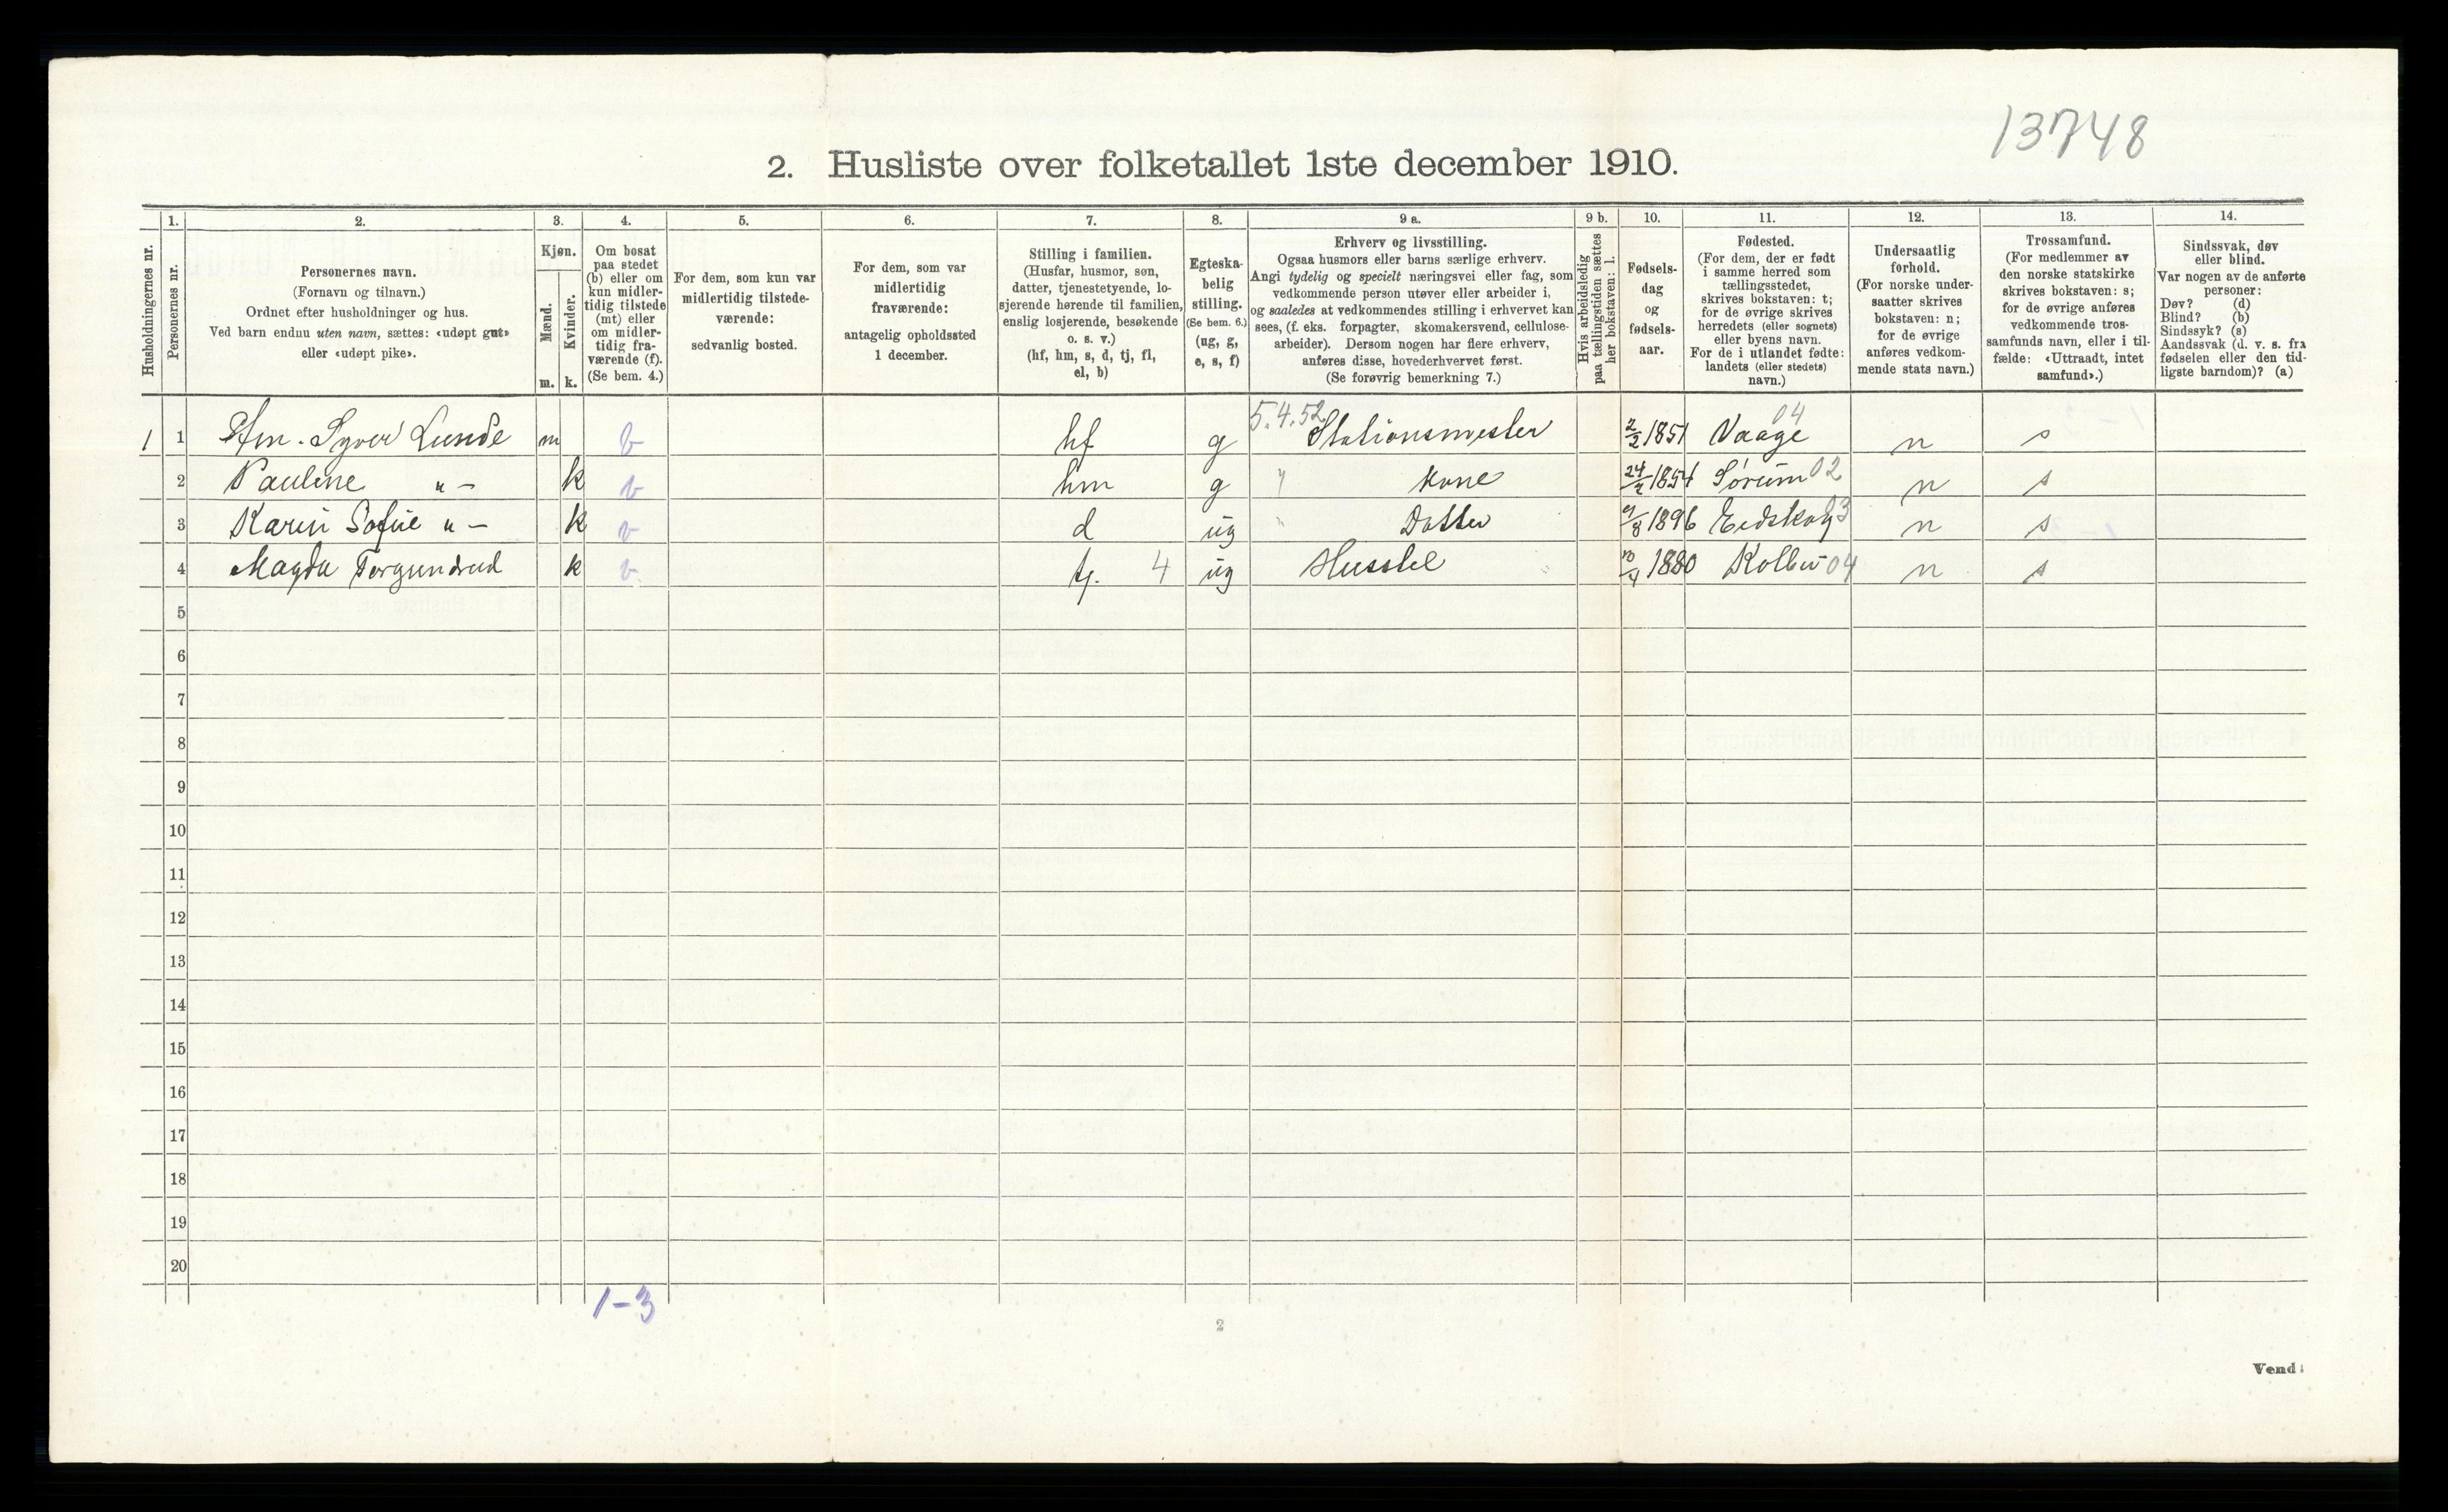 13748
2. Husliste over folketallet 1ste december 1910.
1. 2. 3. 4. 5. 6. 7. 8. 9 a. 9 b. 10. 11. 12. 13. 14.
Husholdningernes nr.
Personernes nr.
Personernes navn.
(Fornavn og tilnavn.)
Ordnet efter husholdninger og hus.
Ved barn endnu uten navn, sættes: «udøpt gut»
eller «udøpt pike».
Kjøn.
Mænd.
m.
Kvinder.
k.
Om bosat
paa stedet
(b) eller om
kun midler-
tidig tilstede
(mt) eller
om midler-
tidig fra-
værende (f).
(Se bem. 4.)
For dem, som kun var
midlertidig tilstede-
værende:
sedvanlig bosted.
For dem, som var
midlertidig
fraværende:
antagelig opholdssted
1 december.
Stilling i familien.
(Husfar, husmor, søn,
datter, tjenestetyende, lo-
sjerende hørende til familien,
enslig losjerende, besøkende
o. s. v.)
(hf, hm, s, d, tj, fl,
el, b)
Egteska-
belig
stilling.
(Se bem. 6.)
(ug, g,
e, s, f)
Erhverv og livsstilling.
Ogsaa husmors eller barns særlige erhverv.
Angi tydelig og specielt næringsvei eller fag, som
vedkommende person utøver eller arbeider i,
og saaledes at vedkommendes stilling i erhvervet kan
sees, (f. eks. forpagter, skomakersvend, cellulose-
arbeider). Dersom nogen har flere erhverv,
anføres disse, hovederhvervet først.
(Se forøvrig bemerkning 7.)
Hvis arbeidsledig
paa tællingstiden sættes
her bokstaven: l.
Fødsels-
dag
og
fødsels-
aar.
Fødested.
(For dem, der er født
i samme herred som
tællingsstedet,
skrives bokstaven: t;
for de øvrige skrives
herredets (eller sognets)
eller byens navn.
For de i utlandet fødte:
landets (eller stedets)
navn.)
Undersaatlig
forhold.
(For norske under-
saatter skrives
bokstaven: n;
for de øvrige
anføres vedkom-
mende stats navn.)
Trossamfund.
(For medlemmer av
den norske statskirke
skrives bokstaven: s;
for de øvrige anføres
vedkommende tros-
samfunds navn, eller i til-
fælde: «Uttraadt, intet
samfund».)
Sindssvak, døv
eller blind.
Var nogen av de anførte
personer:
Døv? (d)
Blind? (b)
Sindssyk? (s)
Aandssvak (d. v. s. fra
fødselen eller den tid-
ligste barndom)? (a)
5.4.52 04
1 1 Syver Lunde m b hf g Stationsmester 2/2 1851 Vaage n s
2 Pauline " - k b hm g " kone 24/2 1854 Sørum 02 n s
3 Karin Sofie " - k b d ug " Datter 9/8 1896 Eidskog 03 n s
4 Magda Torgundrud k b tj. 4 ug Husstel 1880 Kolbu 04 n s
5
6
7
8
9
10
11
12
13
14
15
16
17
18
19
20
1-3
2
Vend!